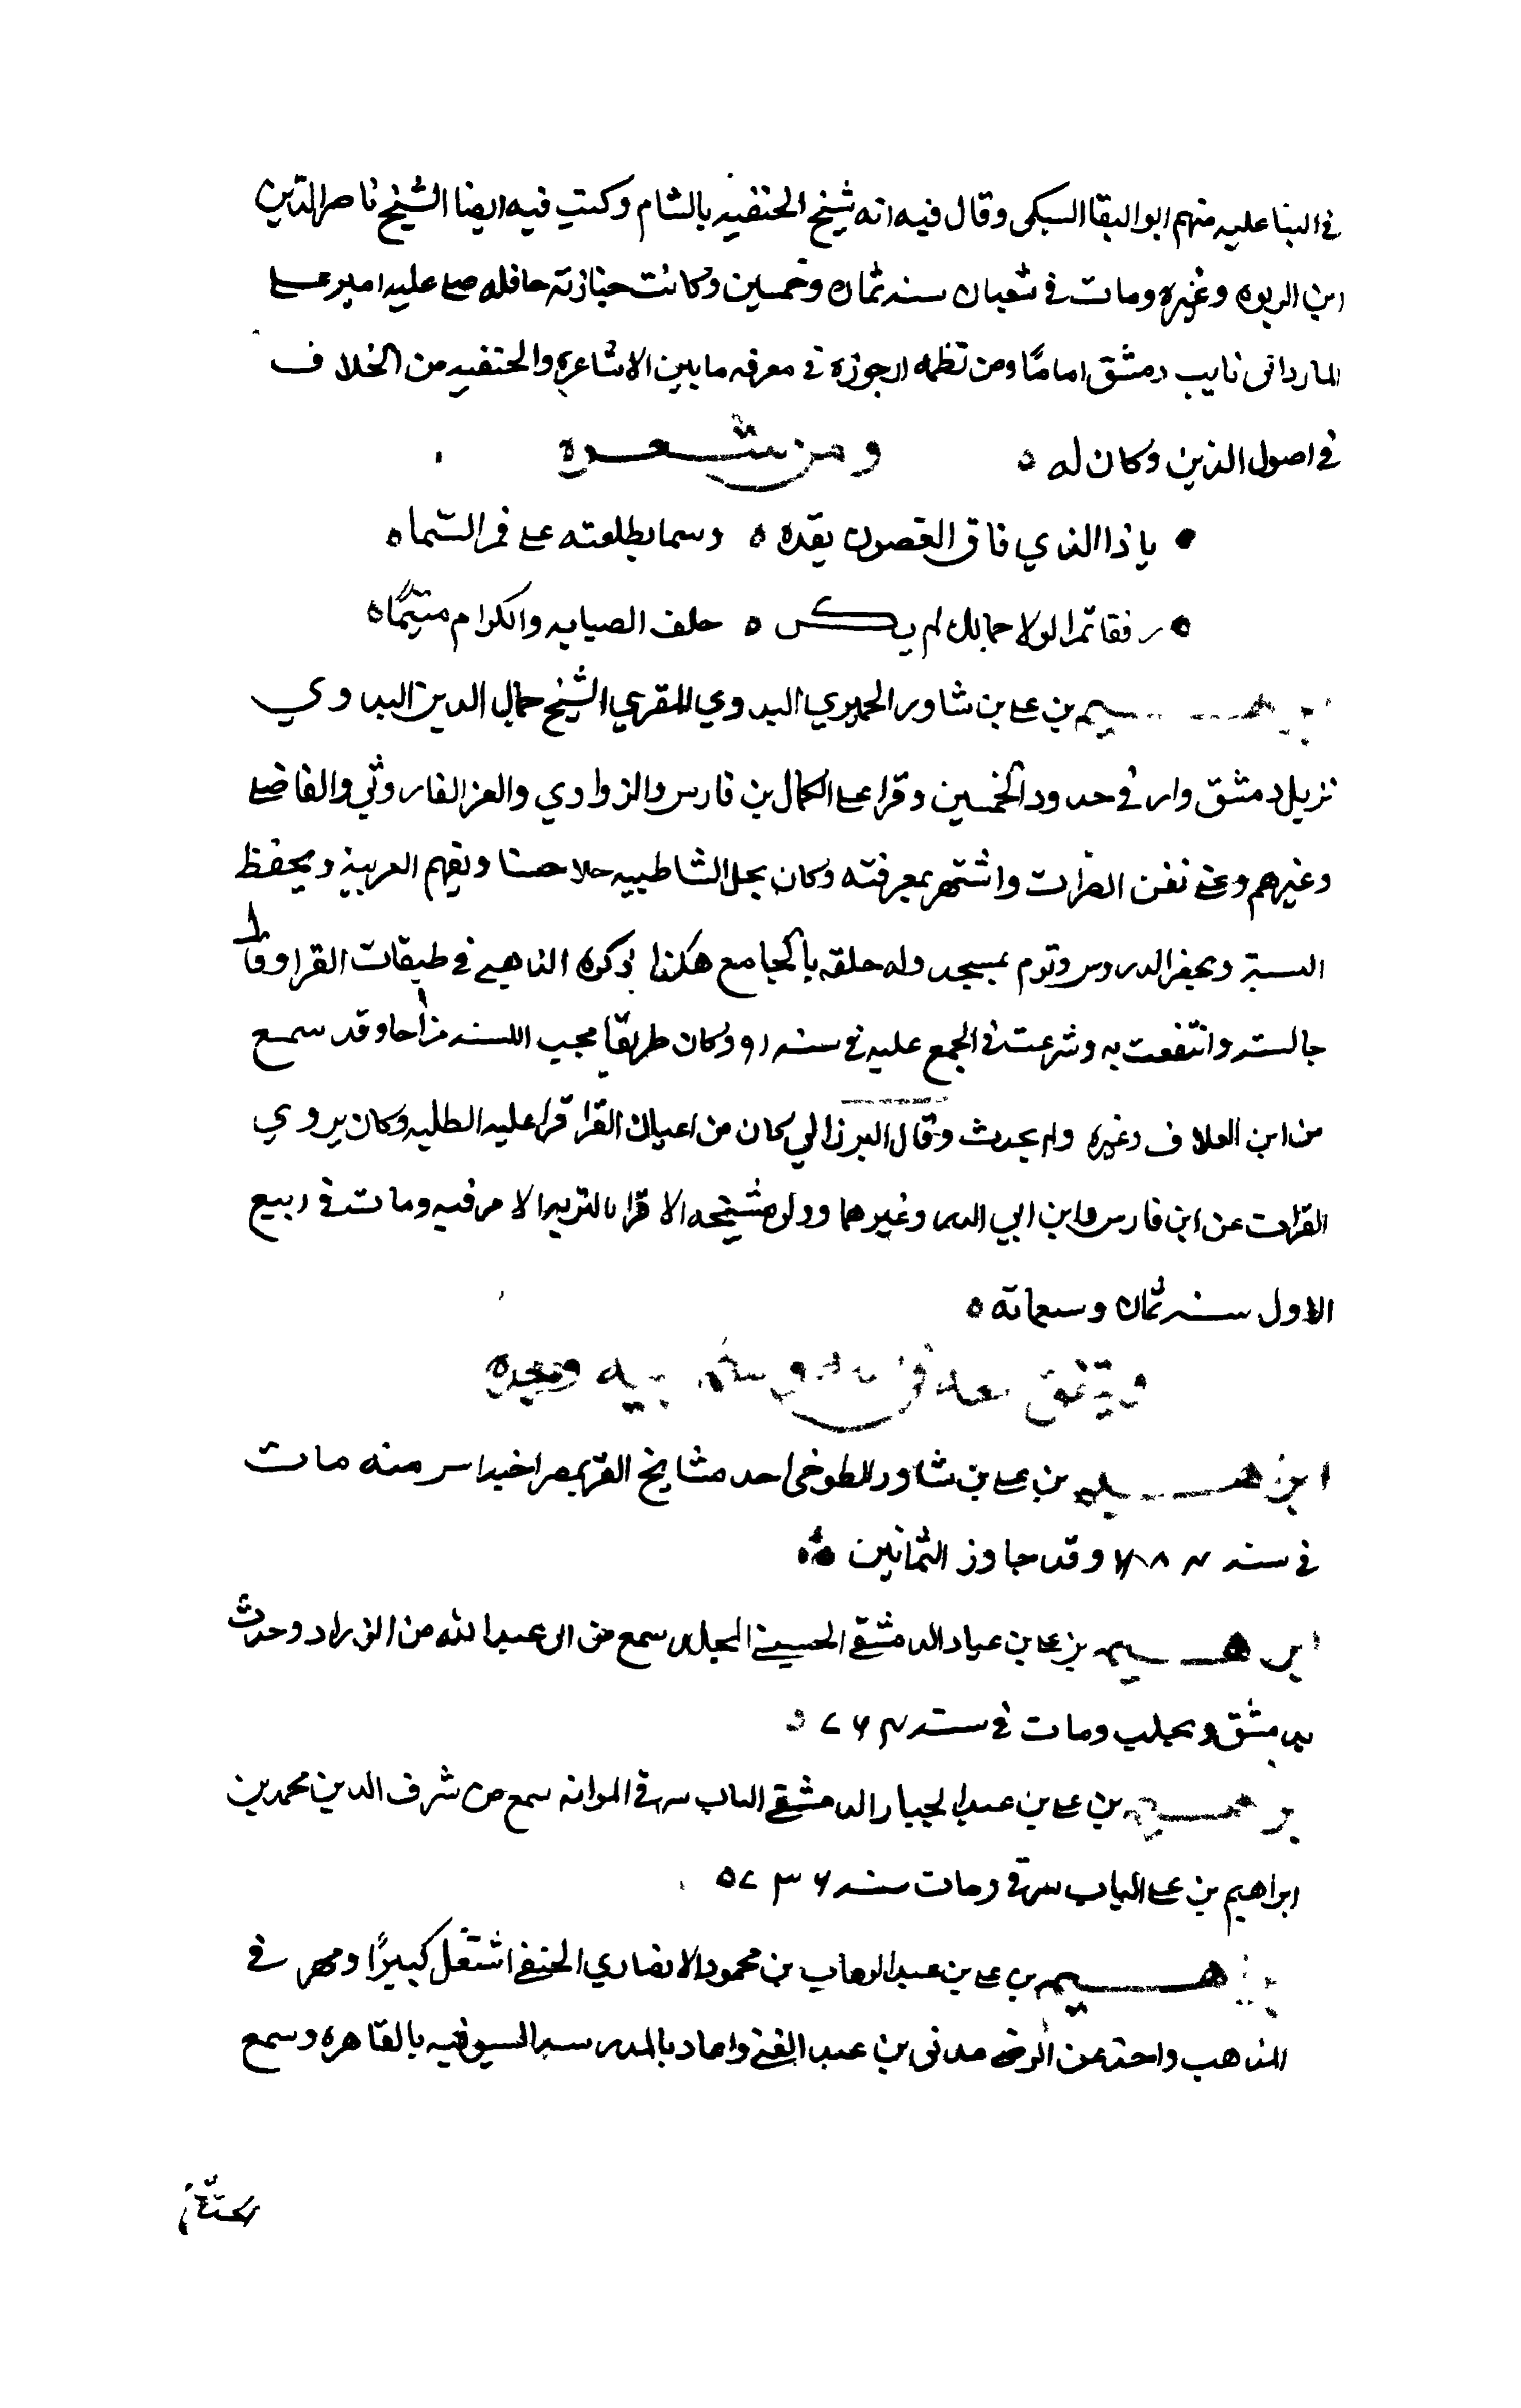 في الثنا عليه منهم ابو البقا السبكى وقال فيه انه شيخ الحنفيه بالشام وكتب فيه ايضا الشيخ ناصر الدين
ابن الربوه وغيره ومات في شعبان سنه ثمان وخمسين وكانت جنازته حافله صلى عليه امير على
الماردانى نايب دمشق اماما ومن نظمه ارجوزه في معرفه ما بين الاشاعره والحنفيه من الخلاف
في اصول الدين وكان له ه ومن شعره
يا ذا الذي فاق الغصون بقده ه وسما بطلعته على قمر السما ه
رفقا بمن لولا جمالك لم يكن ه حلف الصبابه والكرام متيما ه
ابرهيم بن على بن شاور الحميري البدوي المقري الشيخ جمال الدين البدوي
نزيل دمشق ولد في حدود الخمسين وقرا على الكمال بن فارس والزواوي والعز الفاروثي والفاضلي
وغيرهم وعنى بفن القرات واشتهر بمعرفته وكان يحل الشاطبيه حلا حسنا ويفهم العربية ويحفظ
ويحضر الدروس ويؤم بمسجد وله حلقه بالجامع هكذا ذكره الذهبي في طبقات القرا وقال
جالسته وانتفعت به وشرعت في الجمع عليه في سنه ٩١ وكان وقد سمع
من ابن العلاف وغيره ولم يحدث وقال البرزالي كان من اعيان القرا قرا عليه الطلبه وكان يروي
القرات عن ابن فارس وابن ابي الدر وغيرهما وولى مشيخه الاقرا بالتربه الاشرفيه ومات في ربيع
الاول سنه ثمان وسبعمائه ه
ويتفق معه في اسمه واسم ابيه وجده
ابرهيم بن على بن شاور الطوخى احد مشايخ القرا بمصر اخبرنا سر منه مات
في سنه ٧٨٢ وقد جاوز الثمانين ه
ابرهيم بن على بن عباد الدمشقي الحسيني المجلد سمع من ابى عبد الله من الزراد وحدث
بدمشق وبحلب ومات في سنه ٧٦٤ ه
ابرهيم بن على بن عبد الجبار الدمشقي الباب سرقى سمع من شرف الدين محمد بن
ابراهيم بن على الباب سرقى ومات سنه ٧٣٦ ه
ابرهيم بن على بن عبد الوهاب بن محمود الانصاري الحنفي اشتغل كبيرًا ومهر في
المذهب واخذ عن مدنى بن عبد الغني واعاد بالمدرسه السيوفيه بالقاهره وسمع